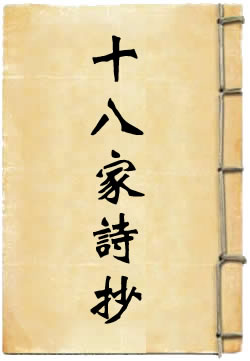 十八家詩抄